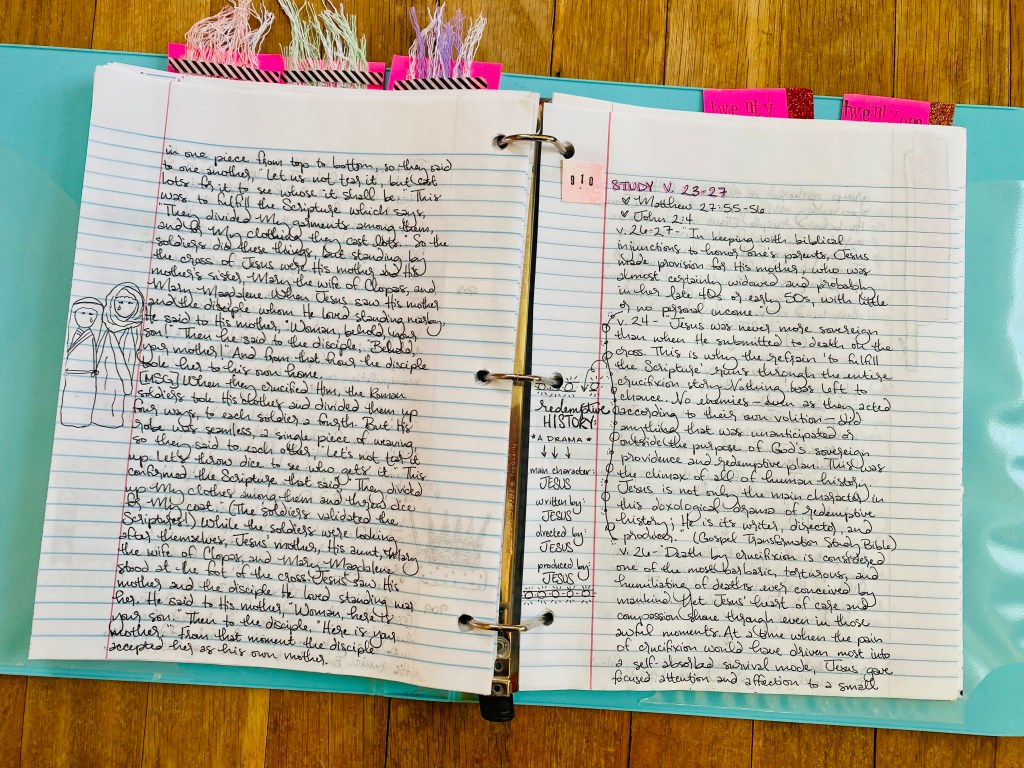 twenty
twenty one
in one piece from top to bottom, so they said
to one another, "Let us not tear it, but cast
lots for it to see whose it shall be." This
was to fulfill the Scripture which says,
"They divided My garments among them,
and for My clothing they cast lots." So the
soldiers did these things, but standing by
the cross of Jesus were His mother and His
mother's sister, Mary the wife of Clopas, and
Mary Magdalene. When Jesus saw His mother
and the disciple whom He loved standing nearby,
He said to His mother, "Woman, behold your
son!" Then he said to the disciple, "Behold,
your mother!" And from that hour the disciple
took her to his own home.
[MSG] When they crucified Him, the Roman
soldiers took His clothes and divided them up
four ways, to each soldier a fourth. But His
robe was seamless, a single piece of weaving,
so they said to each other, "Let's not tear it
up. Let's throw dice to see who gets it." This
confirmed the Scripture that said, "They divided
up My clothes among them and threw dice
for My coat." (The soldiers validated the
Scriptures!) While the soldiers were looking
after themselves, Jesus' mother, His aunt, Mary
the wife of Clopas, and Mary Magdalene
stood at the foot of the cross. Jesus saw His
mother and the disciple He loved standing near
her. He said to His mother, "Woman, here is
your son." Then to the disciple, "Here is your
mother." From that moment the disciple
accepted her as his own mother.
STUDY V. 23-27
Matthew 27:55-56
John 2:4
v. 26-27- "In keeping with biblical
injunctions to honor one's parents, Jesus
made provision for His mother, who was
almost certainly widowed and probably
in her late 40s or early 50s, with little
or no personal income."
v. 24- "Jesus was never more sovereign
than when He submitted to death on the
cross. This is why the refrain 'to fulfill
the Scripture' runs through the entire
crucifixion story. Nothing was left to
chance. No enemies- even as they acted
according to their own volition- did
anything that was unanticipated or
outside the purpose of God's sovereign
providence and redemptive plan. This was
the climax of all of human history.
Jesus is not only the main character in
this doxological drama of redemptive
history; He is its writer, director, and
producer." (Gospel Transformation Study Bible)
v. 26- "Death by crucifixion is considered
one of the most barbaric, torturous, and
humiliating of deaths ever conceived by
mankind. Yet Jesus' heart of care and
compassion shone through even in those
awful moments. At a time when the pain
of crucifixion would have driven most into
a self-absorbed survival mode, Jesus gave
focused attention and affection to a small
redemptive
HISTORY:
A DRAMA
main character:
JESUS
written by:
JESUS
directed by:
JESUS
produced by:
JESUS